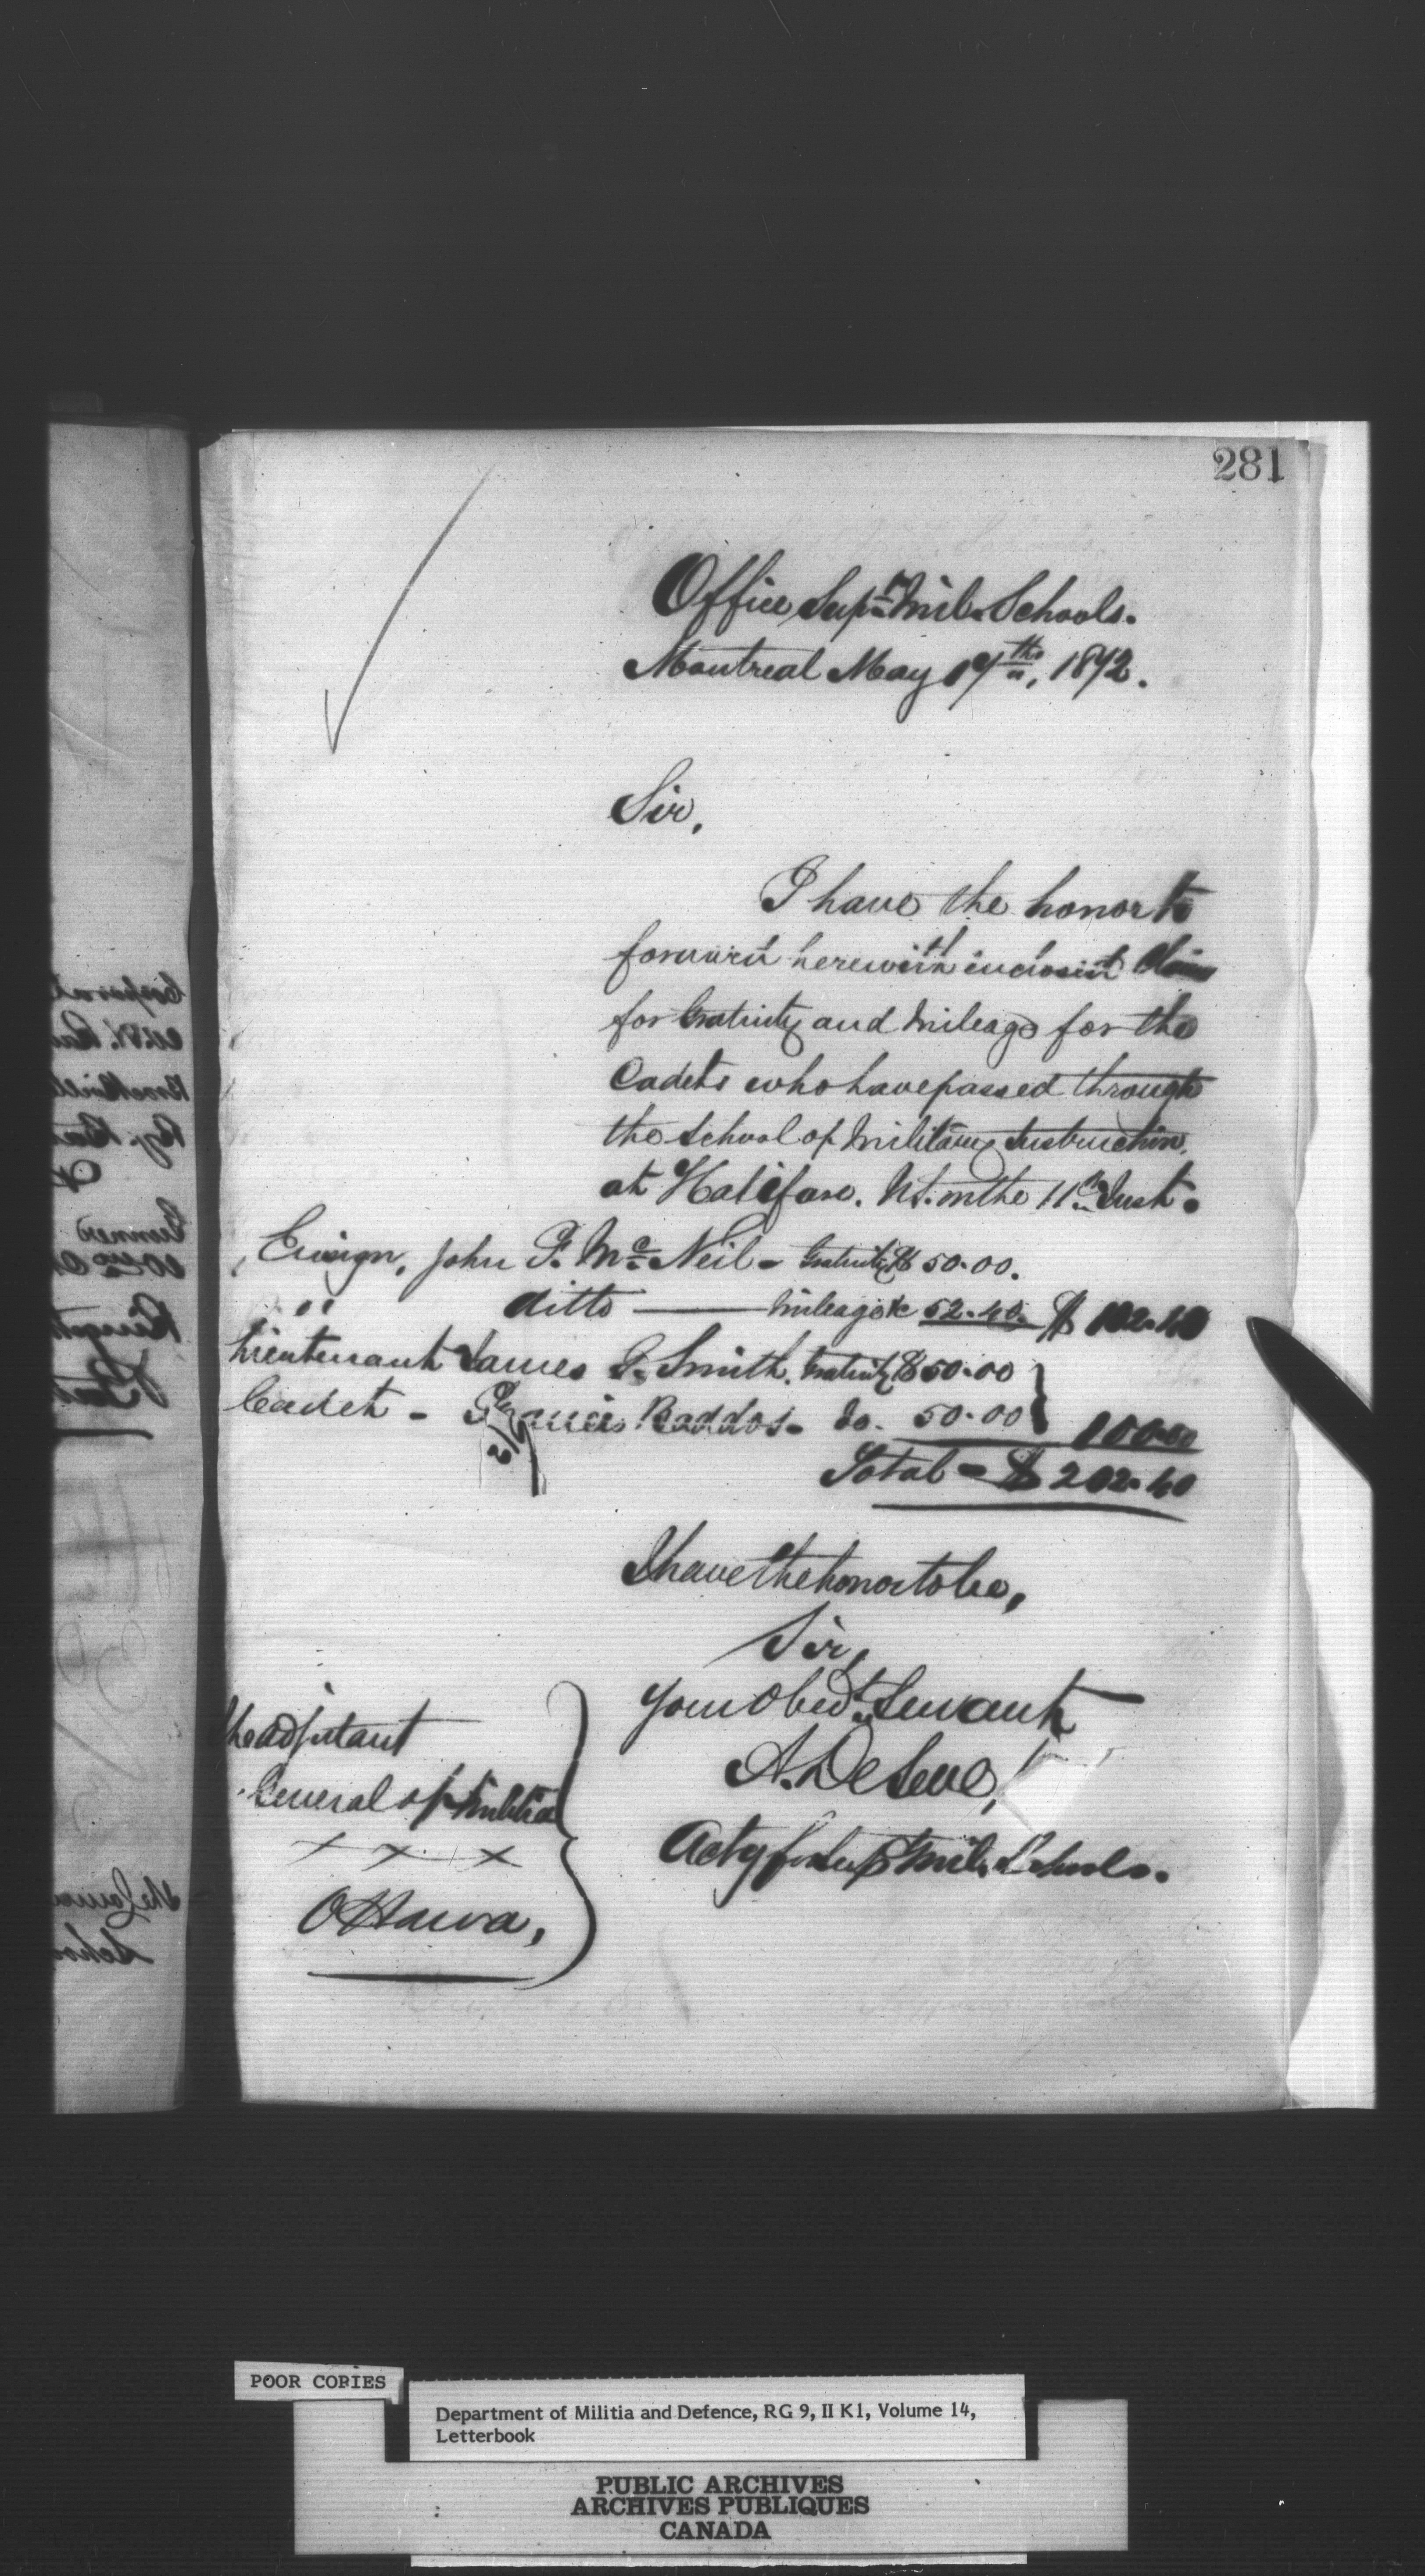 281
Office Supt. Mil. Schools.
Montreal May 17th, 1872.
Sir,
I have the honor to
forward herewith inclosed Claims
for Gratuity and Mileage for the
Cadets who have passed through
the School of Military Instruction,
at Halifax. N.S. on the 11th Inst.
Ensign, John F. Mc Neil - Gratuity $ 50.00.
" ditto — Mileage &c 52.40. $ 102.40
Lieutenant James G. Smith. Gratuity $ 50.00
Cadet - Francis Beddos - do. 50.00 } 100.00
Total - $ 202.40
I have the honor to be,
Sir,
Your Obedt. Servant
A. DeSeve,
Actg for Supt Mil. Schools.
The Adjutant
General of Militia
x x x
Ottawa,
POOR COPIES
Department of Militia and Defence, RG 9, II K1, Volume 14,
Letterbook
PUBLIC ARCHIVES
ARCHIVES PUBLIQUES
CANADA